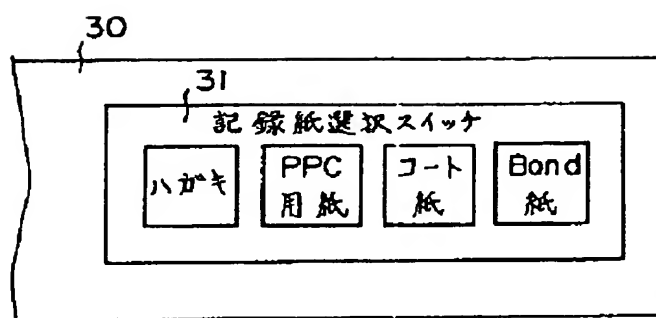 30
31
記録紙選択スイッチ
ハガキ
PPC
用紙
コート
紙
Bond
紙